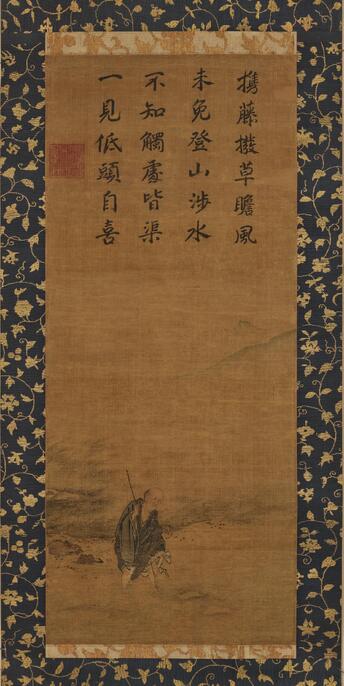 携藤撥草瞻風
未免登山渉水
不知觸處皆渠
一見低頭自喜